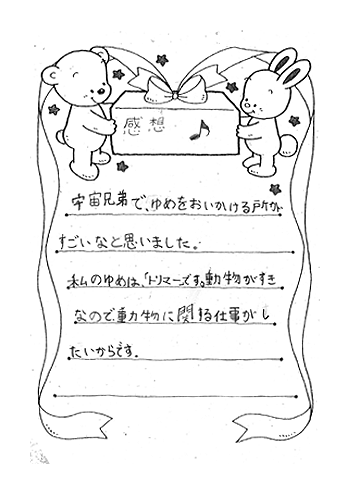 感想
宇宙兄弟で、ゆめをおいかける所が
すごいなと思いました。
私のゆめは、トリマーです。動物がすき
なので動物に関する仕事がし
たいからです。